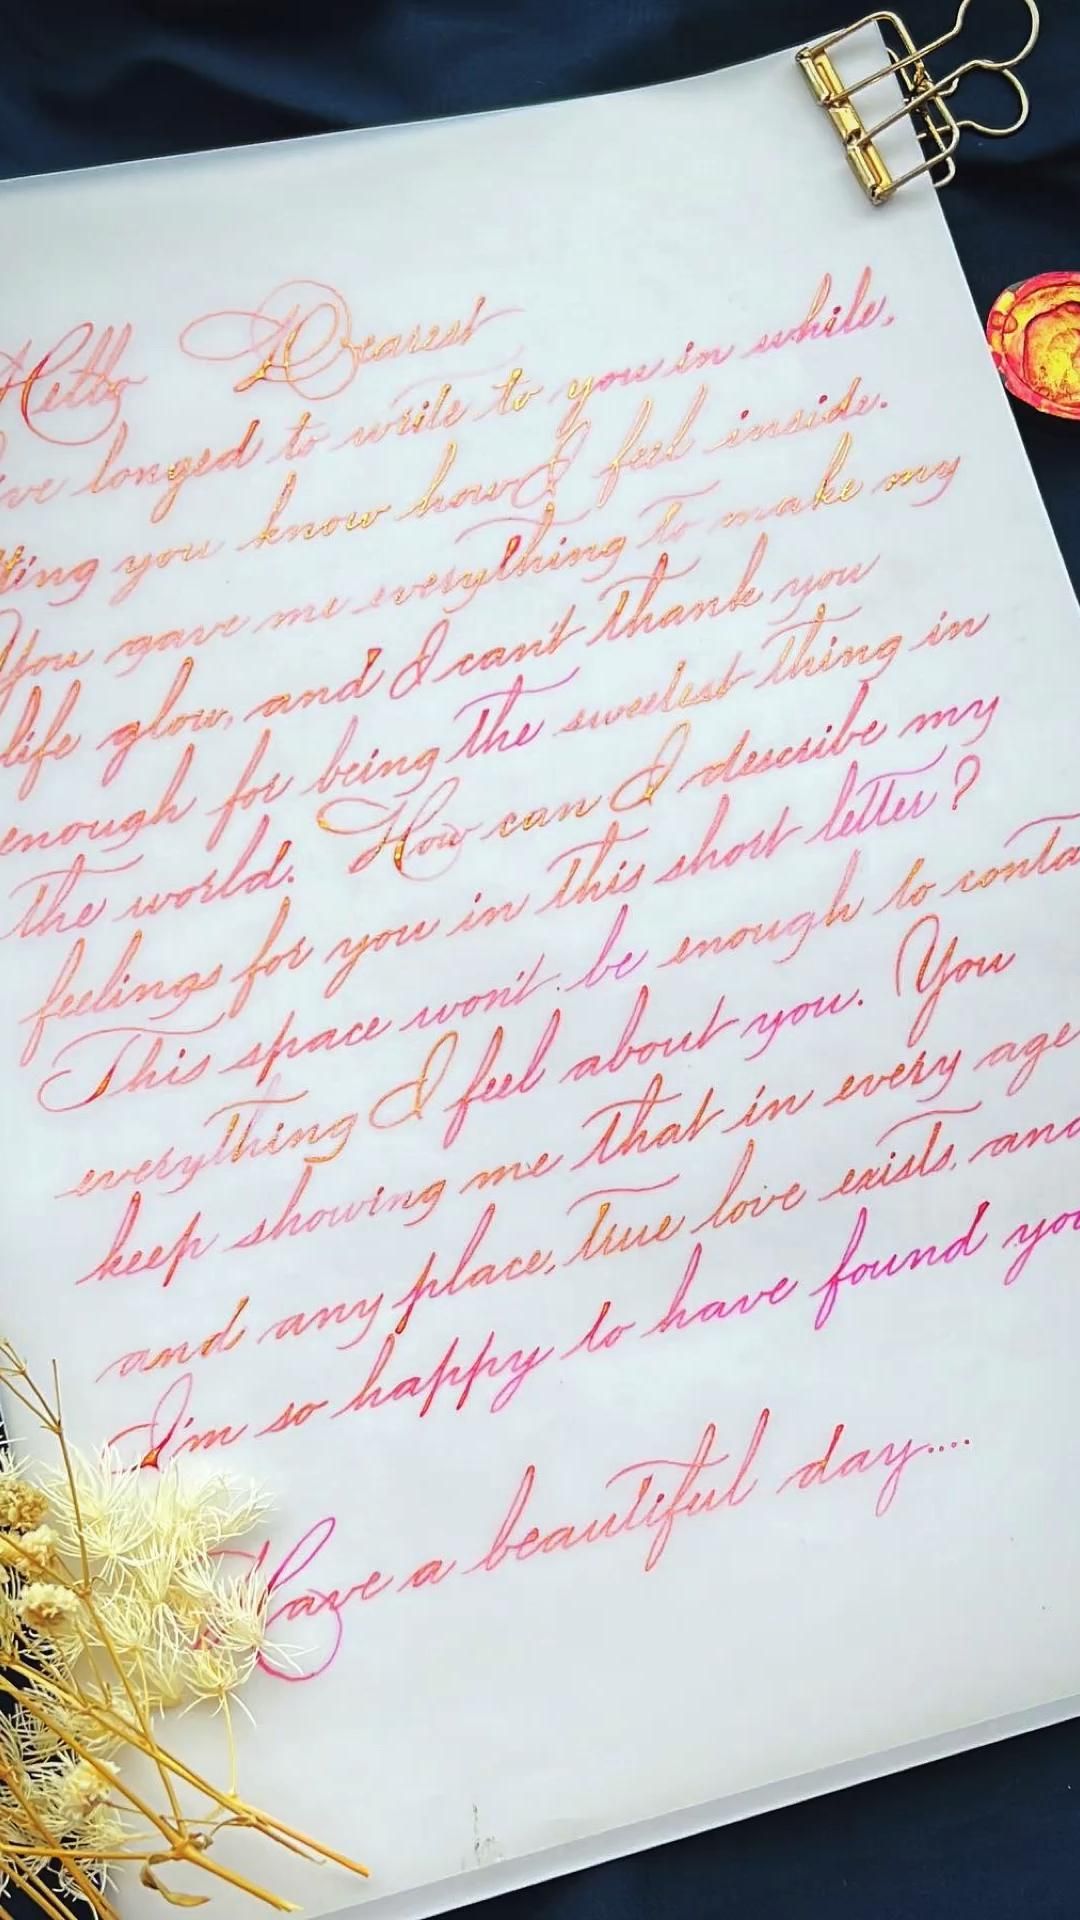 Hello Dearest
ve longed to write to you in while,
tting you know how I feel inside.
You gave me everything to make my
life glow, and I can't thank you
enough for being the sweetest thing in
the world. How can I describe my
feelings for you in this short letter?
This space won't be enough to conta
everything I feel about you. You
keep showing me that in every age
and any place, true love exists, and
I'm so happy to have found you
Have a beautiful day....